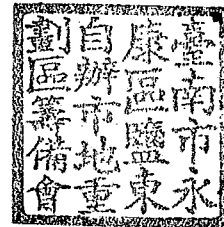 臺南市永
康區鹽東
自辦市地重
劃區籌備會